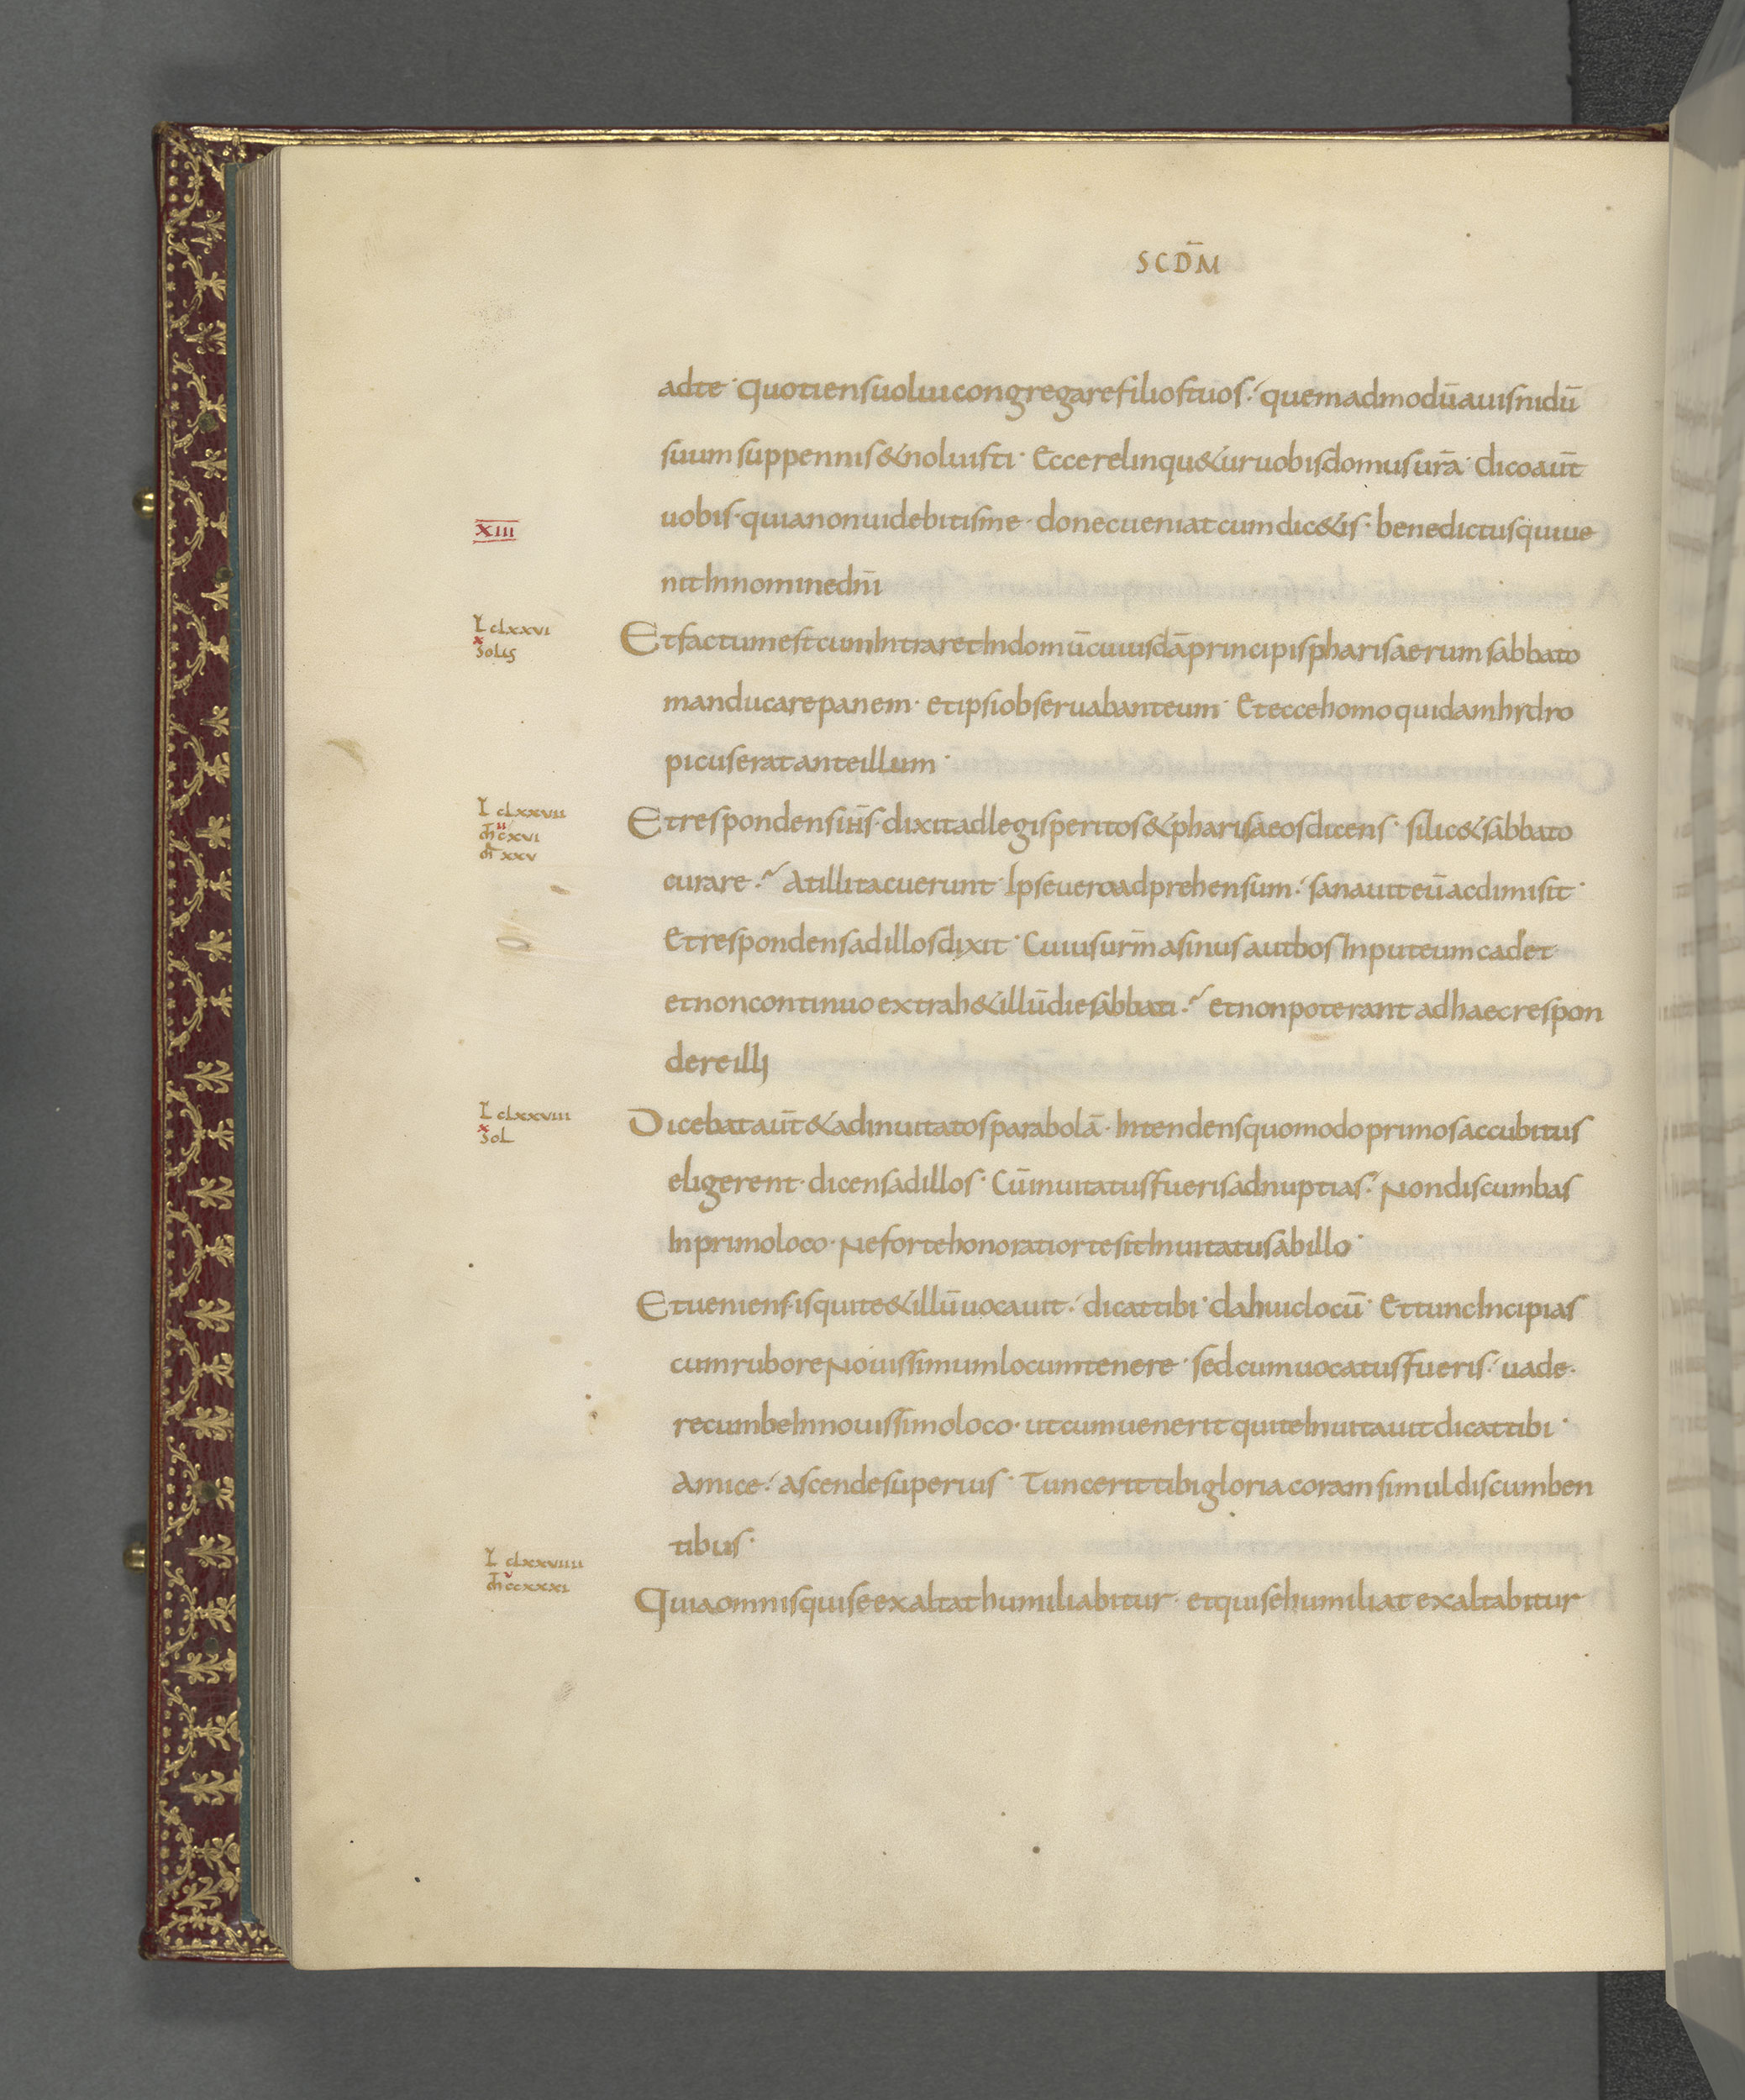 SCDM̄
adte · Quotiens uolui congregare filios tuos · quemadmodū auis nidū
suum sub pennis & noluisti · Ecce relinqu&ur uobis domus ur̄a · dico aūt
uobis · quia non uidebitis me · donec ueniat cum dic&is · benedictus qui ue
XIII
nit In nomine dn̄i
L CLXXVI
x
SOLIS
Et factum est cum Intraret In domū cuiusdā principis pharisaeorum sabbato
manducare panem · et ipsi obseruabant eum · Et ecce homo quidam hydro
picus erat ante illum ·
L CLXXVII
M̄ CXVI
XXV
Et respondens ih̄s · dixit ad legisperitos & pharisaeos dicens · si lic& sabbato
curare · At illi tacuerunt · Ipse uero adprehensum · sanauit eū ac dimisit ·
Et respondens ad illos dixit · Cuius ur̄m asinus aut bos In puteum cadet
et non continuo extrah& illū die sabbati · et non poterant ad haec respon
dere illi
L CLXXVIII
x
SOL
Dicebat aūt & ad inuitatos parabolā · Intendens quomodo primos accubitus
eligerent · dicens ad illos · Cū inuitatus fueris ad nuptias · Non discumbas
In primo loco · Ne forte honoratior te sit Inuitatus ab illo ·
Et ueniens · is qui te & illū uocauit · dicat tibi · da huic locū · Et tunc Incipias
cum rubore Nouissimum locum tenere · sed cum uocatus fueris · uade ·
recumbe In nouissimo loco · ut cum uenerit qui te Inuitauit dicat tibi ·
Amice · ascende superius · Tunc erit tibi gloria coram simul discumben
tibus ·
L CLXXVIIII
M̄ CCXXXI
Quia omnis qui se exaltat humiliabitur · et qui se humiliat exaltabitur